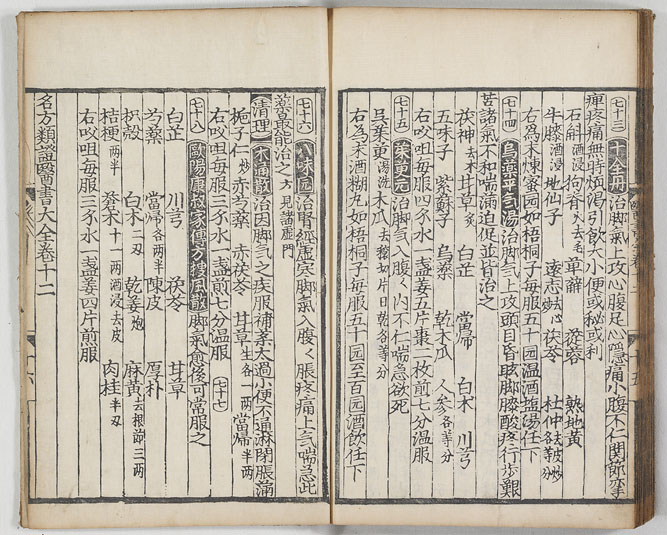 七十三 十全丹 治脚氣上攻心腹足心隱痛小腹不仁関節攣
痺疼痛無時煩渴引飲大小便或秘或利
石斛酒浸 狗脊火去毛 萆薢 蓯蓉 熟地黄
牛膝酒浸 地仙子 遠志炒去心 茯苓 杜仲各等分
右為末煉蜜园如梧桐子每服五十园温酒塩湯任下
七十四 烏藥平气湯 治脚气上攻頭目昏眩脚膝酸疼行步艱
苦諸氣不和喘滿迫促並皆治之
茯神去木 甘草炙 白芷 當歸 白朮 川芎
五味子 紫蘇子 烏藥 乾木瓜 人參各等分
右㕮咀每服四夕水一盞姜五片棗二枚煎七分温服
七十五 茱萸元 治脚气入腹く内不仁喘急欲死
吳茱萸湯洗 木瓜去穰切片日乾各等分
右為末酒糊丸如梧桐子每服五十园至百园酒飲任下
七十六 八味园 治腎經虛寒脚氣入腹く脹疼痛上气喘急此
藥最能治之方見諸虛門
清理 木通散 治因脚气之疾服補藥太過小便不通淋閉脹滿
梔子仁炒 赤芍藥 赤茯苓 甘草生各一两 當歸半两
右㕮咀每服三夕水一盞煎七分温服 七十七
七十八 歐陽康叔家傳方摉風散 脚氣愈後可常服之
白芷 川芎 茯苓 甘草
芍藥 當歸各两半 陳皮 厚朴
枳殼 白朮二刄 乾姜炮 麻黄去根節三两
桔梗两半 蒼朮十一两酒浸去皮 肉桂半刄
右㕮咀每服三夕水一盞姜四片煎服
名方類證醫書大全卷十二